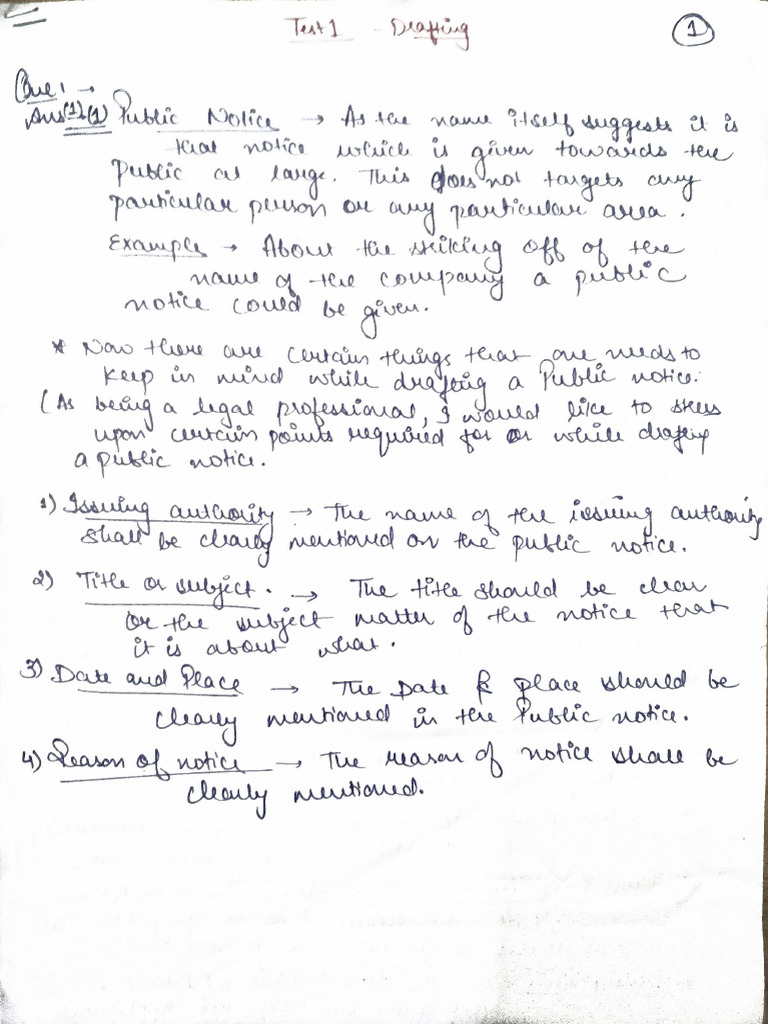 Test 1 - Drafting
1
Que 1 →
Ans(1)(1) Public Notice → As the name itself suggests it is
that notice which is given towards the
Public at large. This does not targets any
particular person or any particular area.
Example → About the striking off of the
name of the company a public
notice could be given.
* Now there are certain things that are needs to
keep in mind while drafting a Public notice.
(As being a legal professional, I would like to stress
upon certain points required for or while drafting
a public notice.
1) Issuing authority → The name of the issuing authority
shall be clearly mentioned on the public notice.
2) Title or subject. → The title should be clear
or the subject matter of the notice that
it is about what.
3) Date and Place → The Date & place should be
clearly mentioned in the Public notice.
4) Reason of notice → The reason of notice shall be
clearly mentioned.